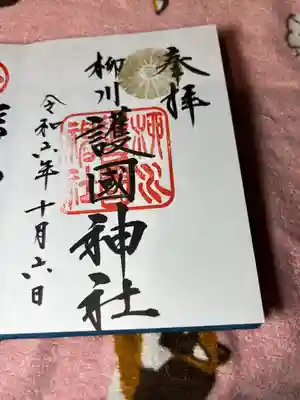 奉拝
柳川
護國神社
令和六年十月六日
柳川
護國
神社